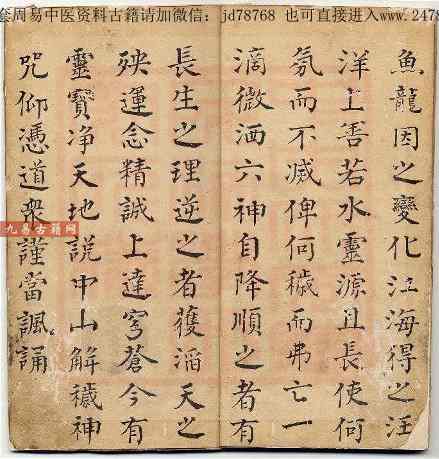 套周易中医资料古籍请加微信：jd78768 也可直接进入www.2478
魚龍因之變化江海得之汪
洋上善若水靈源且長使何
氛而不滅俾何穢而弗亡一
滴微洒六神自降順之者有
長生之理逆之者獲滔天之
殃運念精誠上達穹蒼今有
靈寶净天地説中山解穢神
咒仰憑道衆謹當諷誦
九易古籍网